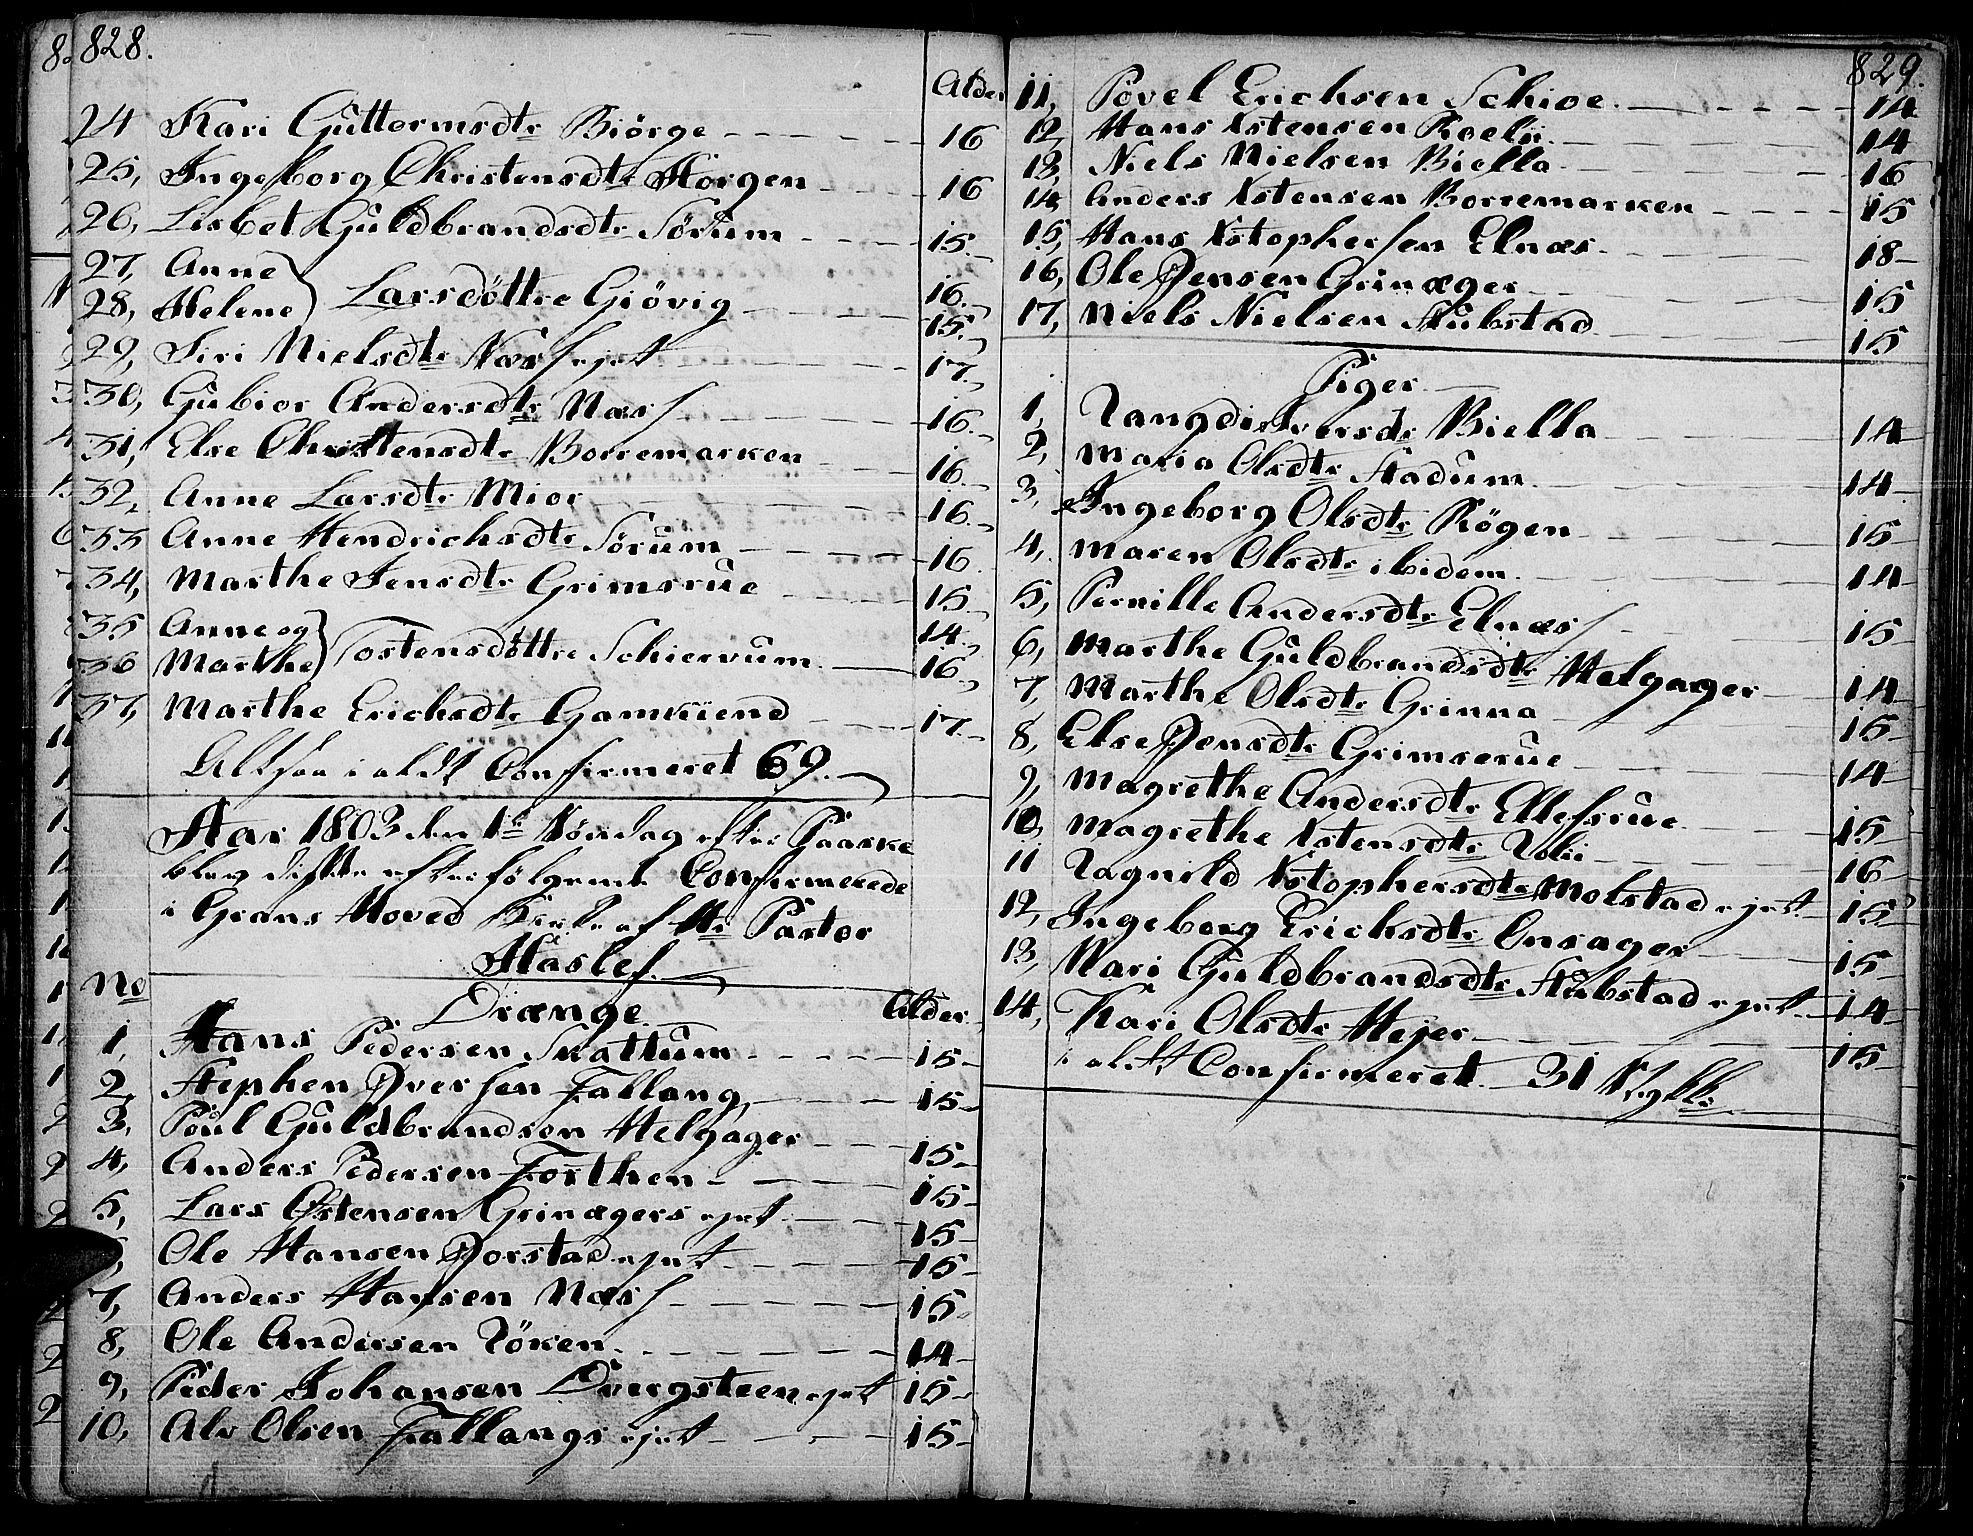 828.
Alder
24 Kari Guttormsdtr Biörge 16
25, Ingeborg Christensdtr Horgen 16
26, Lisbet Guldbrandsdtr Sörum 15
27, Anne
28, Helene } Larsdöttre Giövig 16 15
29, Siri Nielsdtr Næss ejet 17
30, Gubior Andersdtr Næss 16
31, Else Christensdtr Borremarken 16
32, Anne Larsdtr Mior 16
33 Anne Hendrichsdtr Sörum 16
34, Marthe Jensdtr Grimsrue 15
35 Anne og 14
36 Marthe } Tostensdöttre Schiervum 16
37, Marthe Erichsdtr Gamkiend 17
Altsaa i aldt Confirmeret 69.
Aar 1803 den 1te Söndag efter Paaske
blev disse efterfölgende Confirmerede
i Grans Hoved Kirke af Hr Pastor
Haslef
No Drænge Alder
1, Hans Pedersen Skattum 15
2, Stephen Iversen Fallang 15
3, Poul Guldbrandsen Helgager 15
4, Anders Pedersen Forthen 15
5, Lars Östensen Grinagers ejet 15
Ole Hansen Jorstad ejet 15
7, Anders Hansen Næss 15
8, Ole Andersen Röken 14
9, Peder Johansen Dvergsteen ejet 15
10, Alv Olsen Fallangs ejet 15
829.
11, Povel Erichsen Schioe 14
12, Hans Xstensen Roelii 14
13, Niels Nielsen Biella 16
14, Anders Xstensen Borremarken 15
15, Hans Xstophersen Elnæs 18
16, Ole Jensen Grinager 15
17, Niels Nielsen Stubstad 15
Piger
1, Rangdi Iversdr Biella 14
2, Maria Olsdtr Stadum 14
3, Ingeborg Olsdtr Rögen 15
4, Maren Olsdtr ibidem 14
5, Pernille Andersdtr Elnæs 15
6, Marthe Guldbrandsdtr Helgager 14
7, Marthe Olsdtr Grinna 15
8, Else Jensdtr Grimserue 14
9, Magrethe Andersdtr Ellefsrue 15
10, Magrethe Xstensdtr 16
11 Ragnild Xstophersdtr Molstad ejet 15
12, Ingeborg Erichsdtr Onsager 15
13, Mari Guldbrandsdtr Stubstad ejet 14
14, Kari Olsdtr Hejer 15
i alt Confirmeret 31 Stykker